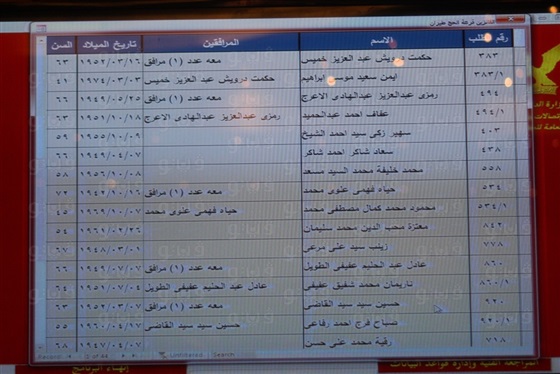 الفائزين لشركة الحج طيران
رقم الطلب الاسم المرافقين تاريخ الميلاد السن
٣٨٣ حكمت درويش عبد العزيز خميس معه عدد (١) مرافق ١٩٥٢/٠٣/١٦ ٦٣
٣٨٣/١ ايمن سعيد موسى ابراهيم حكمت درويش عبد العزيز خميس ١٩٧٤/٠٣/٠٣ ٤١
٤٩٤ رمزى عبدالعزيز عبدالهادى الاعرج معه عدد (١) مرافق ١٩٤٩/٠٥/٢٥ ٦٦
٤٩٤/١ عفاف احمد عبدالحميد رمزى عبدالعزيز عبدالهادى الاعرج ١٩٥١/١٠/١٨ ٦٣
٤٠٣ سهير زكى سيد احمد الشيخ ١٩٥٥/١٠/٠٩ ٥٩
٤٣٨ سعاد شاكر احمد شاكر ١٩٤٩/٠٤/٠٧ ٦٦
٥٥٨ محمد خليفة محمد السيد مسعد ١٩٥٦/١٠/٠٨ ٥٨
٥٣٤ حياه فهمى علوى محمد معه عدد (١) مرافق ١٩٤٢/١٠/١٦ ٧٢
٥٣٤/١ محمود محمد كمال مصطفى محمد حياه فهمى علوى محمد ١٩٦٩/١٠/٠٧ ٤٥
٨٤٢ معتزة محب الدين محمد سليمان ١٩٦١/٠٢/٢٦
٧٧٨ زينب سيد على مرعى ١٩٤٨/٠٣/٠١ ٦٧
٨٦٠ عادل عبد الحليم عفيفى الطويل معه عدد (١) مرافق ١٩٤٩/٠٧/٠٧ ٦٦
٨٦٠/١ ناريمان محمد شفيق عفيفى عادل عبد الحليم عفيفى الطويل ٦٤
٩٢٠ حسين سيد سيد القاضى معه عدد (١) مرافق ١٩٥٢/٠٣/٠٧ ٦٣
٩٢٠/١ صباح فرج احمد رفاعى حسين سيد سيد القاضى ١٩٦٠/٠٤/٠٧ ٥٥
٧١٨ رقية محمد على حسن ١٩٤٧/٠٤/٠٢ ٦٨
Record: Unfiltered Search
المراجعة الفنية وإدارة قواعد البيانات
إنهاء البرنامج